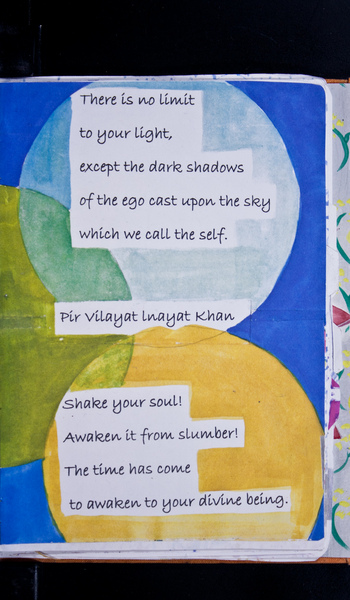 There is no limit
to your light,
except the dark shadows
of the ego cast upon the sky
which we call the self.
Pir Vilayat Inayat Khan
Shake your soul!
Awaken it from slumber!
The time has come
to awaken to your divine being.